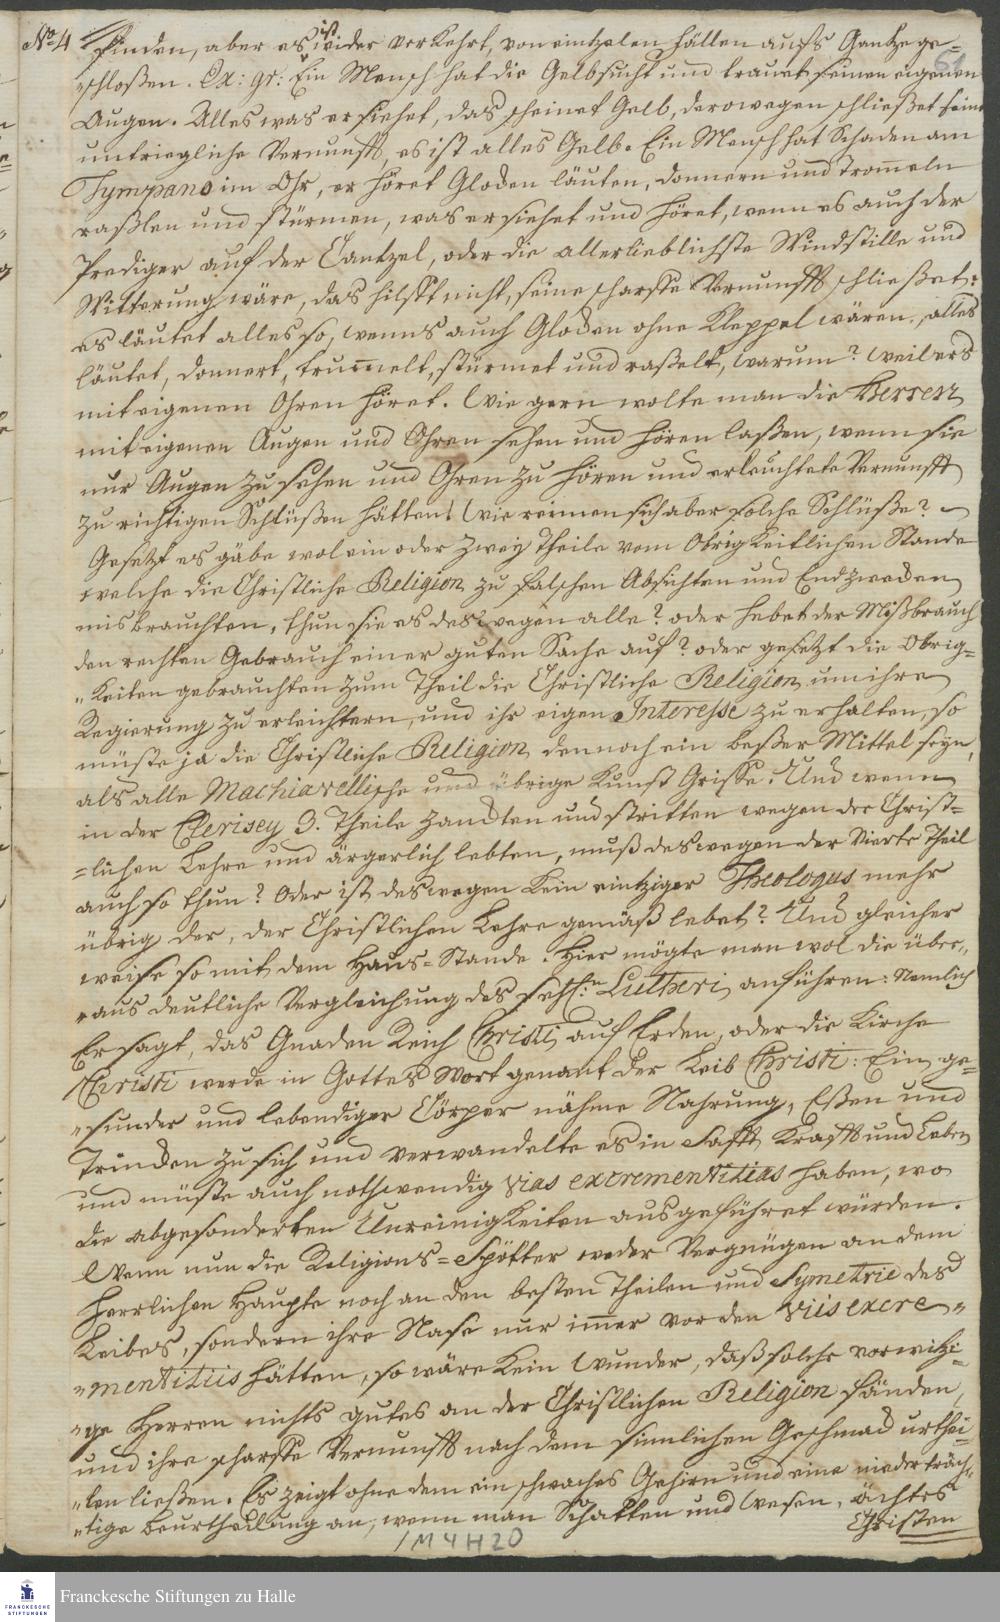 No 4 finden, aber es ist wider verkehrt, von eintzelen Fällen aufs Gantze ge=
"schloßen. Ex: gr: Ein Mensch hat die Gelbsucht und trauet seinen eigenen
Augen. Alles was er siehet, das scheinet Gelb, derowegen schließet seine
untriegliche Vernunfft, es ist alles Gelb. Ein Mensch hat Schaden am
Tympano im Ohr, er höret Glocken läuten, donnern und Trom̄eln
raßlen und stürmen, was er siehet und höret, wenn es auch der
Prediger auf der Cantzel, oder die allerlieblichste Windstille und
Witterung wäre, das hilfft nicht, seine scharffe Vernunfft schließet:
es läutet alles so, wenns auch Glocken ohne Kleppel wären, alles
läutet, donnert, trum̄elt, stürmet und raßelt, warum? weil ers
mit eigenen Ohren höret. Wie gern wolte man die Herren
mit eigenen Augen und Ohren sehen und hören laßen, wenn sie
nur Augen zu sehen und Ohren zu hören und erleuchtete Vernunfft
zu richtigen Schlüßen hätten! Wie reimen sich aber solche Schlüße?
Gesetzt es gäbe wol ein oder zwey Theile vom Obrigkeitlichen Stande
welche die Christliche Religion zu falschen Absichten und Endzwecken
misbrauchten, thun sie es deswegen alle? oder hebet der Mißbrauch
den rechten Gebrauch einer guten Sache auf? oder gesetzt die Obrig=
"keiten gebrauchten zum Theil die Christliche Religion, um ihre
Regierung zu erleichtern, und ihr eigen Interesse zu erhalten, so
müste ja die Christliche Religion dennoch ein beßer Mittel seyn,
als alle Machiavellische und übrige Kunst Griffe. Und wenn
in der Clerisey 3. Theile zanckten und stritten wegen der Christ=
=lichen Lehre und ärgerlich lebten, muß deswegen der Vierte Theil
auch so thun? Oder ist deswegen kein eintziger Theologus mehr
übrig der, der Christlichen Lehre gemäß lebet? Und gleicher
weise so mit dem Haus=Stande. Hier mögte man wol die über"
"aus deutliche Vergleichung des seel:n Lutheri anführen: Nemlich
Er sagt, das Gnaden Reich Christi auf Erden, oder die Kirche
Christi werde in Gottes Wort genant der Leib Christi: Ein ge=
"sunder und lebendiger Cörper nähme Nahrung, Eßen und
Trincken zu sich und verwandelte es in Safft, Krafft und Leben
und müste auch nothwendig vias excrementitias haben, wo
die abgesonderten Unreinigkeiten ausgeführet würden.
Wenn nun die Religions=Spötter weder Vergnügen an dem
herrlichen Haupte noch an den besten Theilen und Symetrie des
Leibes, sondern ihre Nase nur im̄er vor den viis excre"
"mentitiis hätten, so wäre kein Wunder, daß solche vorwitzi=
"ge Herren nichts gutes an der Christlichen Religion fänden,
und ihre scharffe Vernunfft nach dem sinnlichen Geschmack urthei=
"len ließen. Es zeigt ohne dem ein schwaches Gehirn und eine niederträch"
"tige Beurtheilung an, wenn man Schatten und Wesen, ächtes
Christen
1 M 4 H 20
Franckesche Stiftungen zu Halle
FRANCKESCHE
STIFTUNGEN